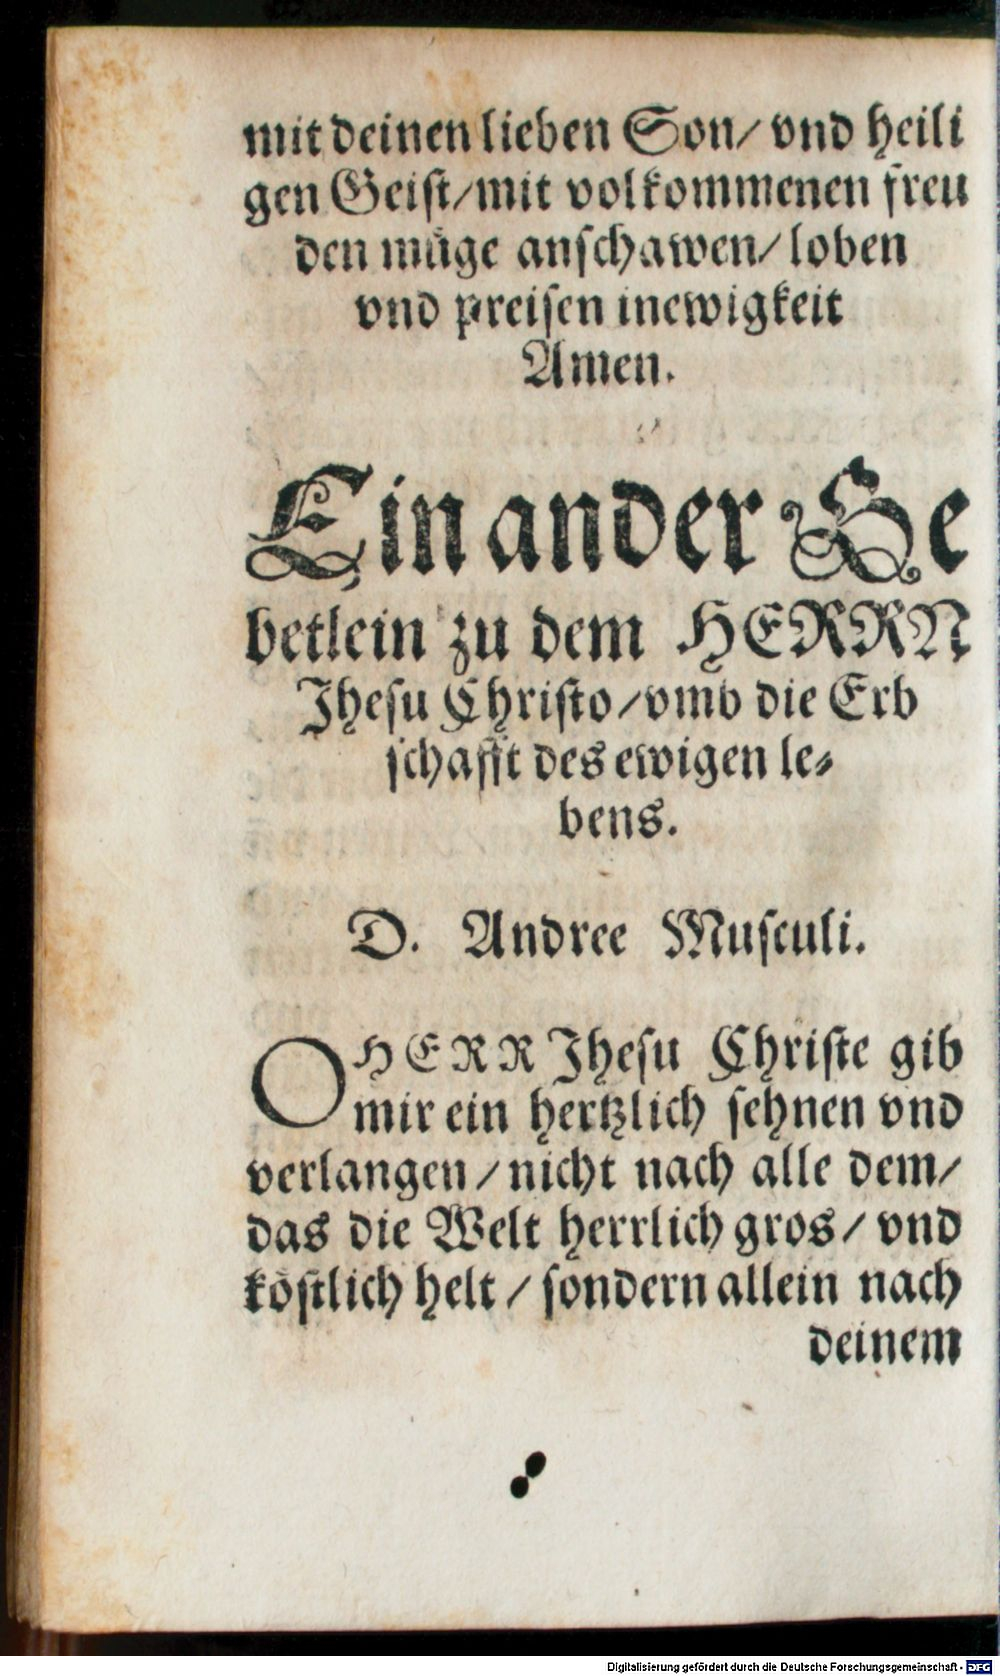 mit deinen lieben Son/ vnd heili
gen Geist/mit volkommenen freu
den müge anschawen/ loben
vnd preisen inewigkeit
Amen.
Ein ander Ge
betlein zu dem HERRN
Jhesu Christo/vmb die Erb
schafft des ewigen le⸗
bens.
D. Andree Musculi.
O HERR Jhesu Christe gib
mir ein hertzlich sehnen vnd
verlangen/nicht nach alle dem/
das die Welt herrlich gros/ vnd
köstlich helt/sondern allein nach
deinem
Digitalisierung gefördert durch die Deutsche Forschungsgemeinschaft - DFG